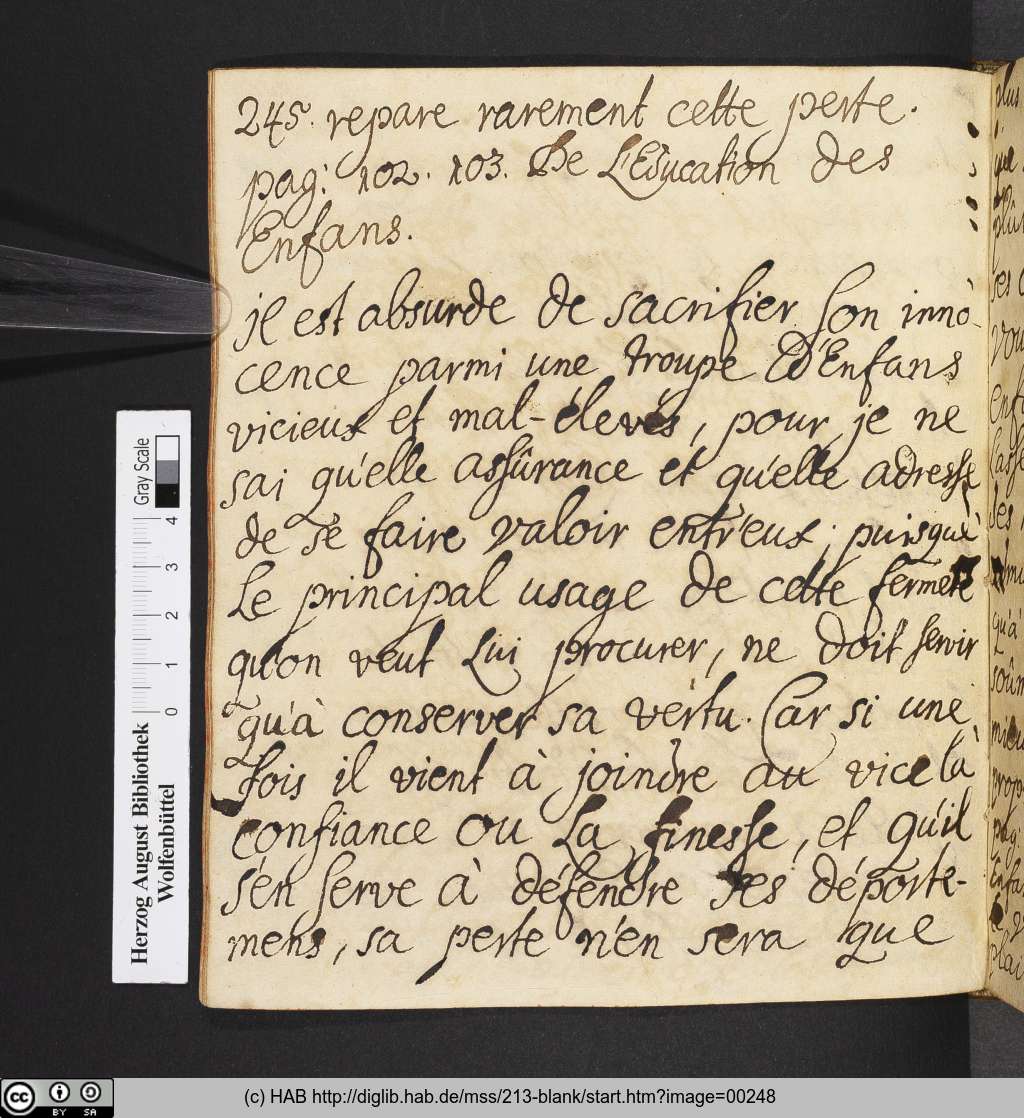 245. repare rarement cette perte.
pag: 102. 103. De L'Education des
Enfans.
jl est absurde de sacrifier son inno-
cence parmi une troupe D'Enfans
vicieux et mal-élevés, pour je ne
sai qu'elle assûrance et qu'elle adresse
de se faire valoir entr'eux; puisque
Le principal usage de cette fermeté
qu'on veut Lui procurer, ne doit servir
qu'à conserver sa vertu. Car si une
fois il vient à joindre au vice la
confiance ou La finesse, et qu'il
s'en serve à défendre ses déporte-
mens, sa perte n'en sera que
plus
Herzog August Bibliothek
Wolfenbüttel
0 1 2 3 4
Gray Scale
cc BY SA
(c) HAB http://diglib.hab.de/mss/213-blank/start.htm?image=00248